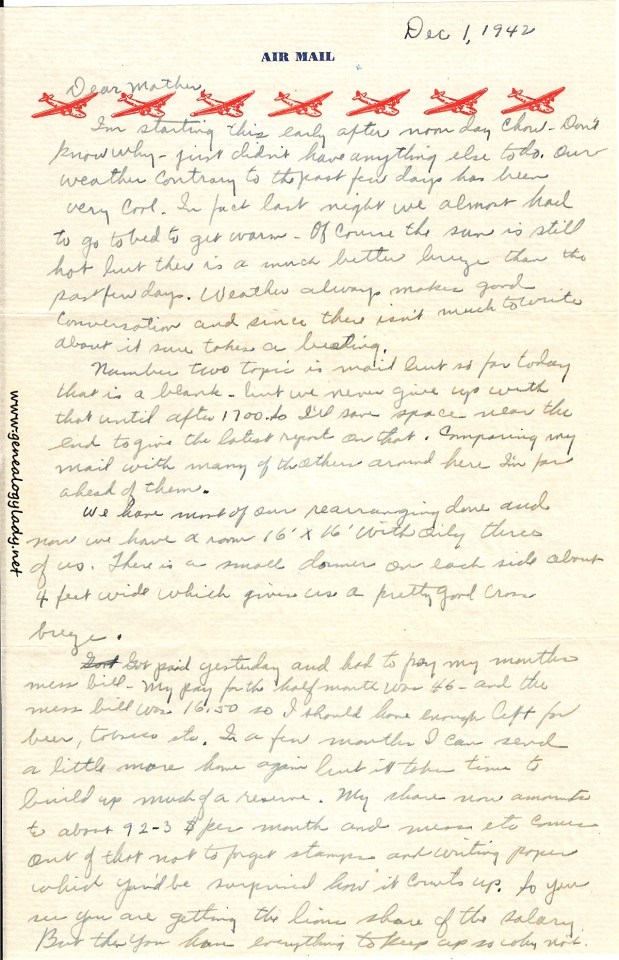 Dec 1, 1942
AIR MAIL
Dear Mother,
I'm starting this early after noon day chow - Don't
know why - just didn't have anything else to do. Our
weather contrary to the past few days has been
very cool. In fact last night we almost had
to go to bed to get warm - Of course the sun is still
hot but there is a much better breeze than the
past few days. Weather always makes good
conversation and since there isn't much to write
about it sure takes a beating.
Number two topic is mail but so far today
that is a blank - but we never give up with
that until after 1700. So I'll save space near the
end to give the latest report on that. Comparing my
mail with many of the others around here I'm far
ahead of them.
We have most of our rearranging done and
now we have a room 16' x 16' with only three
of us. There is a small dormer on each side about
4 feet wide which gives us a pretty good cross
breeze.
Got paid yesterday and had to pay my months
mess bill - My pay for the half month was 46 - and the
mess bill was 16.50 so I should have enough left for
beer, tobacco etc. In a few months I can send
a little more home again but it takes time to
build up much of a reserve. My share now amounts
to about 92-3 $ per month and mess etc comes
out of that not to forget stamps and writing paper
which you'd be surprised how it counts up. So you
see you are getting the lions share of the salary.
But then you have everything to keep up so why not.
www.genealogylady.net